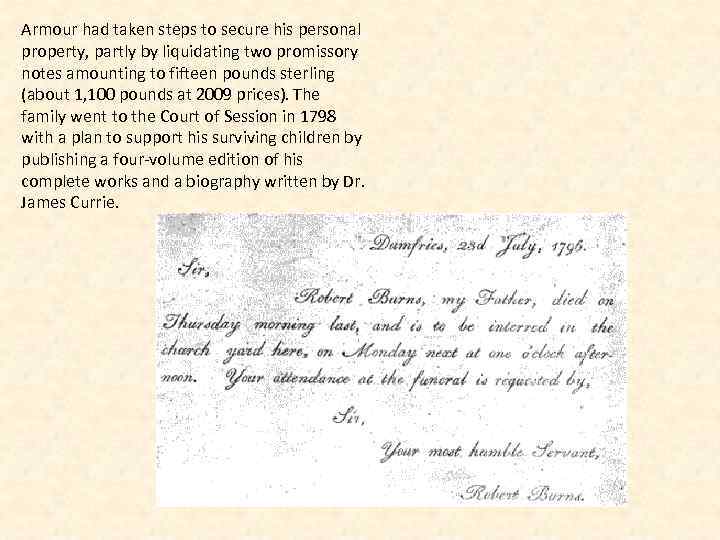 Armour had taken steps to secure his personal
property, partly by liquidating two promissory
notes amounting to fifteen pounds sterling
(about 1,100 pounds at 2009 prices). The
family went to the Court of Session in 1798
with a plan to support his surviving children by
publishing a four-volume edition of his
complete works and a biography written by Dr.
James Currie.
Dumfries, 23d July, 1796.
Sir,
Robert Burns, my Father, died on
Thursday morning last, and is to be interred in the
church yard here, on Monday next at one o'clock after-
noon. Your attendance at the funeral is requested by,
Sir,
Your most humble Servant,
Robert Burns.